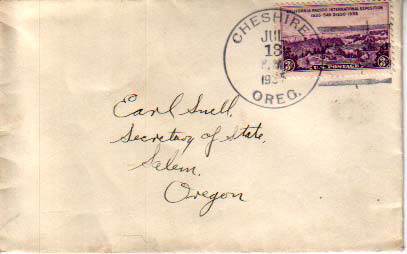 CALIFORNIA PACIFIC INTERNATIONAL EXPOSITION
1935 SAN DIEGO 1935
3¢ U.S. POSTAGE 3¢
CHESHIRE
JUL
13
OREG.
Earl Snell,
Secretary of State,
Salem,
Oregon